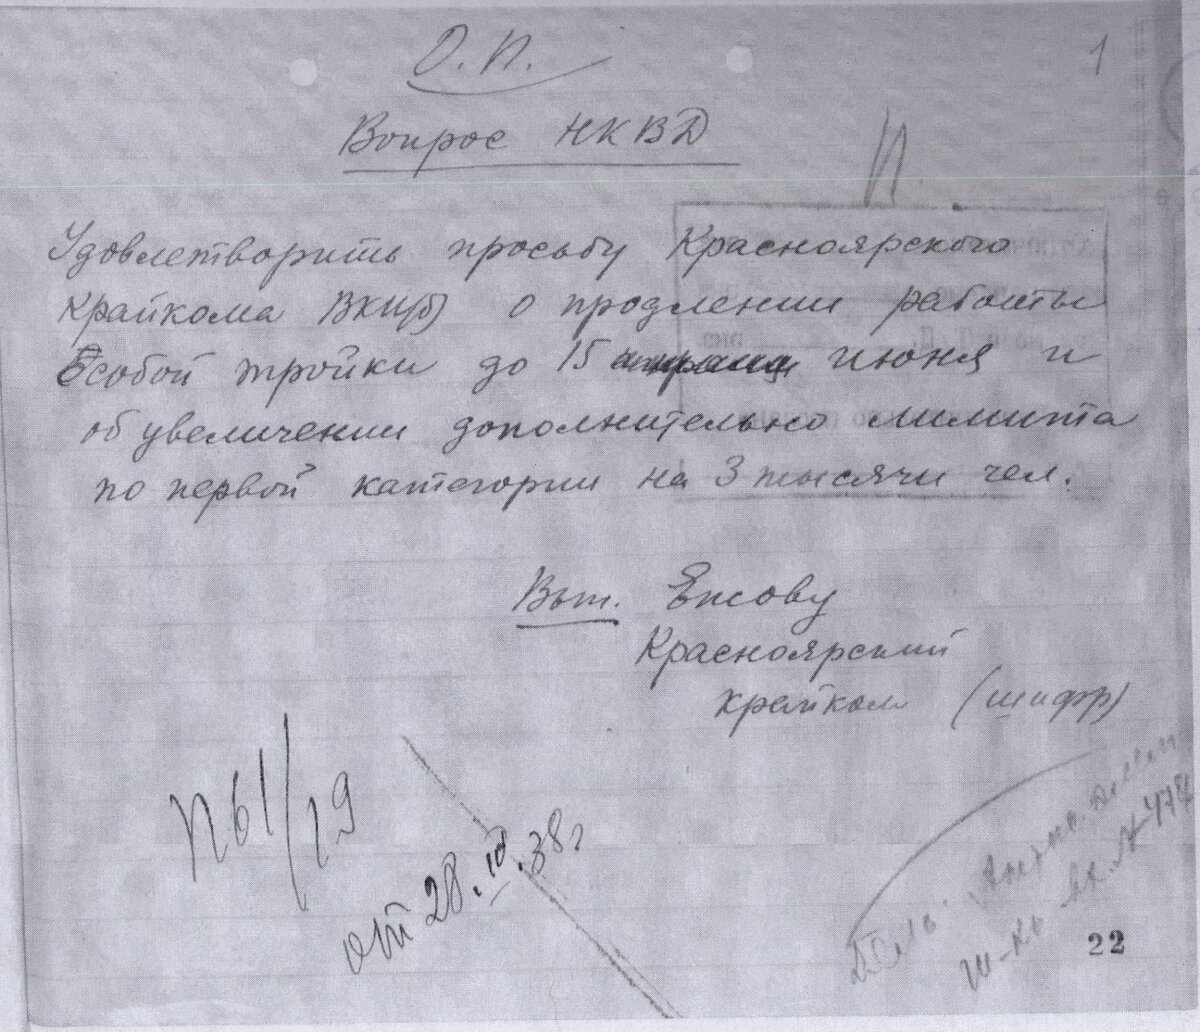 О.П.
1
Вопрос НКВД
П
Удовлетворить просьбу Красноярского
крайкома ВКП(б) о продлении работы
Особой тройки до 15 июня и
об увеличении дополнительно лимита
по первой категории на 3 тысячи чел.
Вып. Ежову
Красноярский
крайком (шифр)
П61/19
от 28.III.38г
22